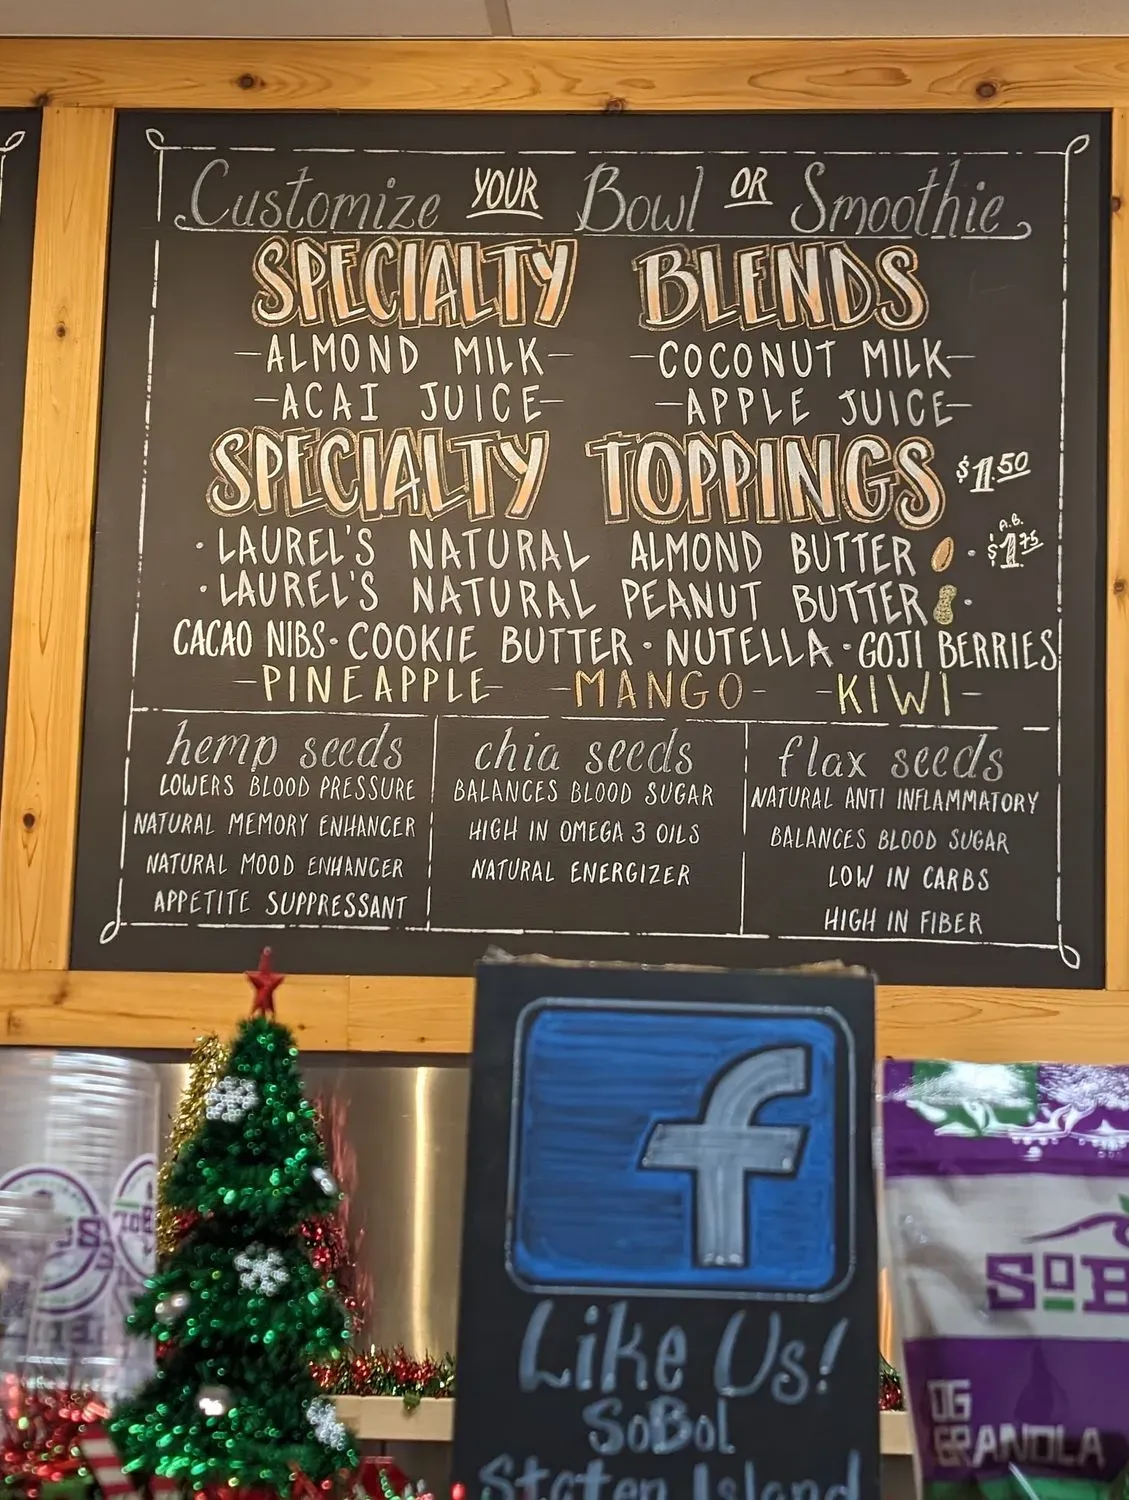 Customize YOUR Bowl OR Smoothie
SPECIALTY BLENDS
-ALMOND MILK- -COCONUT MILK-
-ACAI JUICE- -APPLE JUICE-
SPECIALTY TOPPINGS $1.50
· LAUREL'S NATURAL ALMOND BUTTER · A.B. $1.75
· LAUREL'S NATURAL PEANUT BUTTER ·
CACAO NIBS · COOKIE BUTTER · NUTELLA · GOJI BERRIES
-PINEAPPLE- -MANGO- -KIWI-
hemp seeds
LOWERS BLOOD PRESSURE
NATURAL MEMORY ENHANCER
NATURAL MOOD ENHANCER
APPETITE SUPPRESSANT
chia seeds
BALANCES BLOOD SUGAR
HIGH IN OMEGA 3 OILS
NATURAL ENERGIZER
flax seeds
NATURAL ANTI INFLAMMATORY
BALANCES BLOOD SUGAR
LOW IN CARBS
HIGH IN FIBER
f
Like Us!
SoBol
Staten Island
SOB
OG
GRANOLA